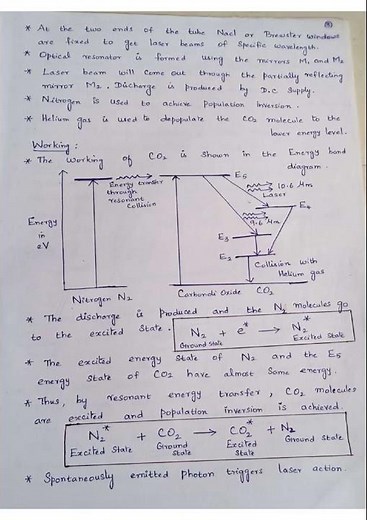 * At the two ends of the tube Nacl or Brewster windows
are fixed to get laser beams of specific wavelength.
* Optical resonator is formed using the mirrors M1 and M2
* Laser beam will come out through the partially reflecting
mirror M2. Discharge is produced by D.C supply.
* Nitrogen is used to achieve population inversion.
* Helium gas is used to depopulate the CO2 molecule to the
lower energy level.
Working:
* The working of CO2 is shown in the Energy band
diagram.
E5
Energy transfer
through
resonant
Collision
10.6 μm
Laser
E4
9.6 μm
Energy
in
eV
E3
E2
Collision with
Helium gas
Nitrogen N2
Carbondi Oxide CO2
* The discharge is produced and the N2 molecules go
to the excited state.
N2 + e* → N2*
Ground state
Excited State
* The excited energy state of N2 and the E5
energy state of CO2 have almost Same energy.
* Thus, by resonant energy transfer, CO2 molecules
are excited and population inversion is achieved.
N2* + CO2 → CO2* + N2
Excited State Ground state Excited State Ground State
* Spontaneously emitted photon triggers laser action.